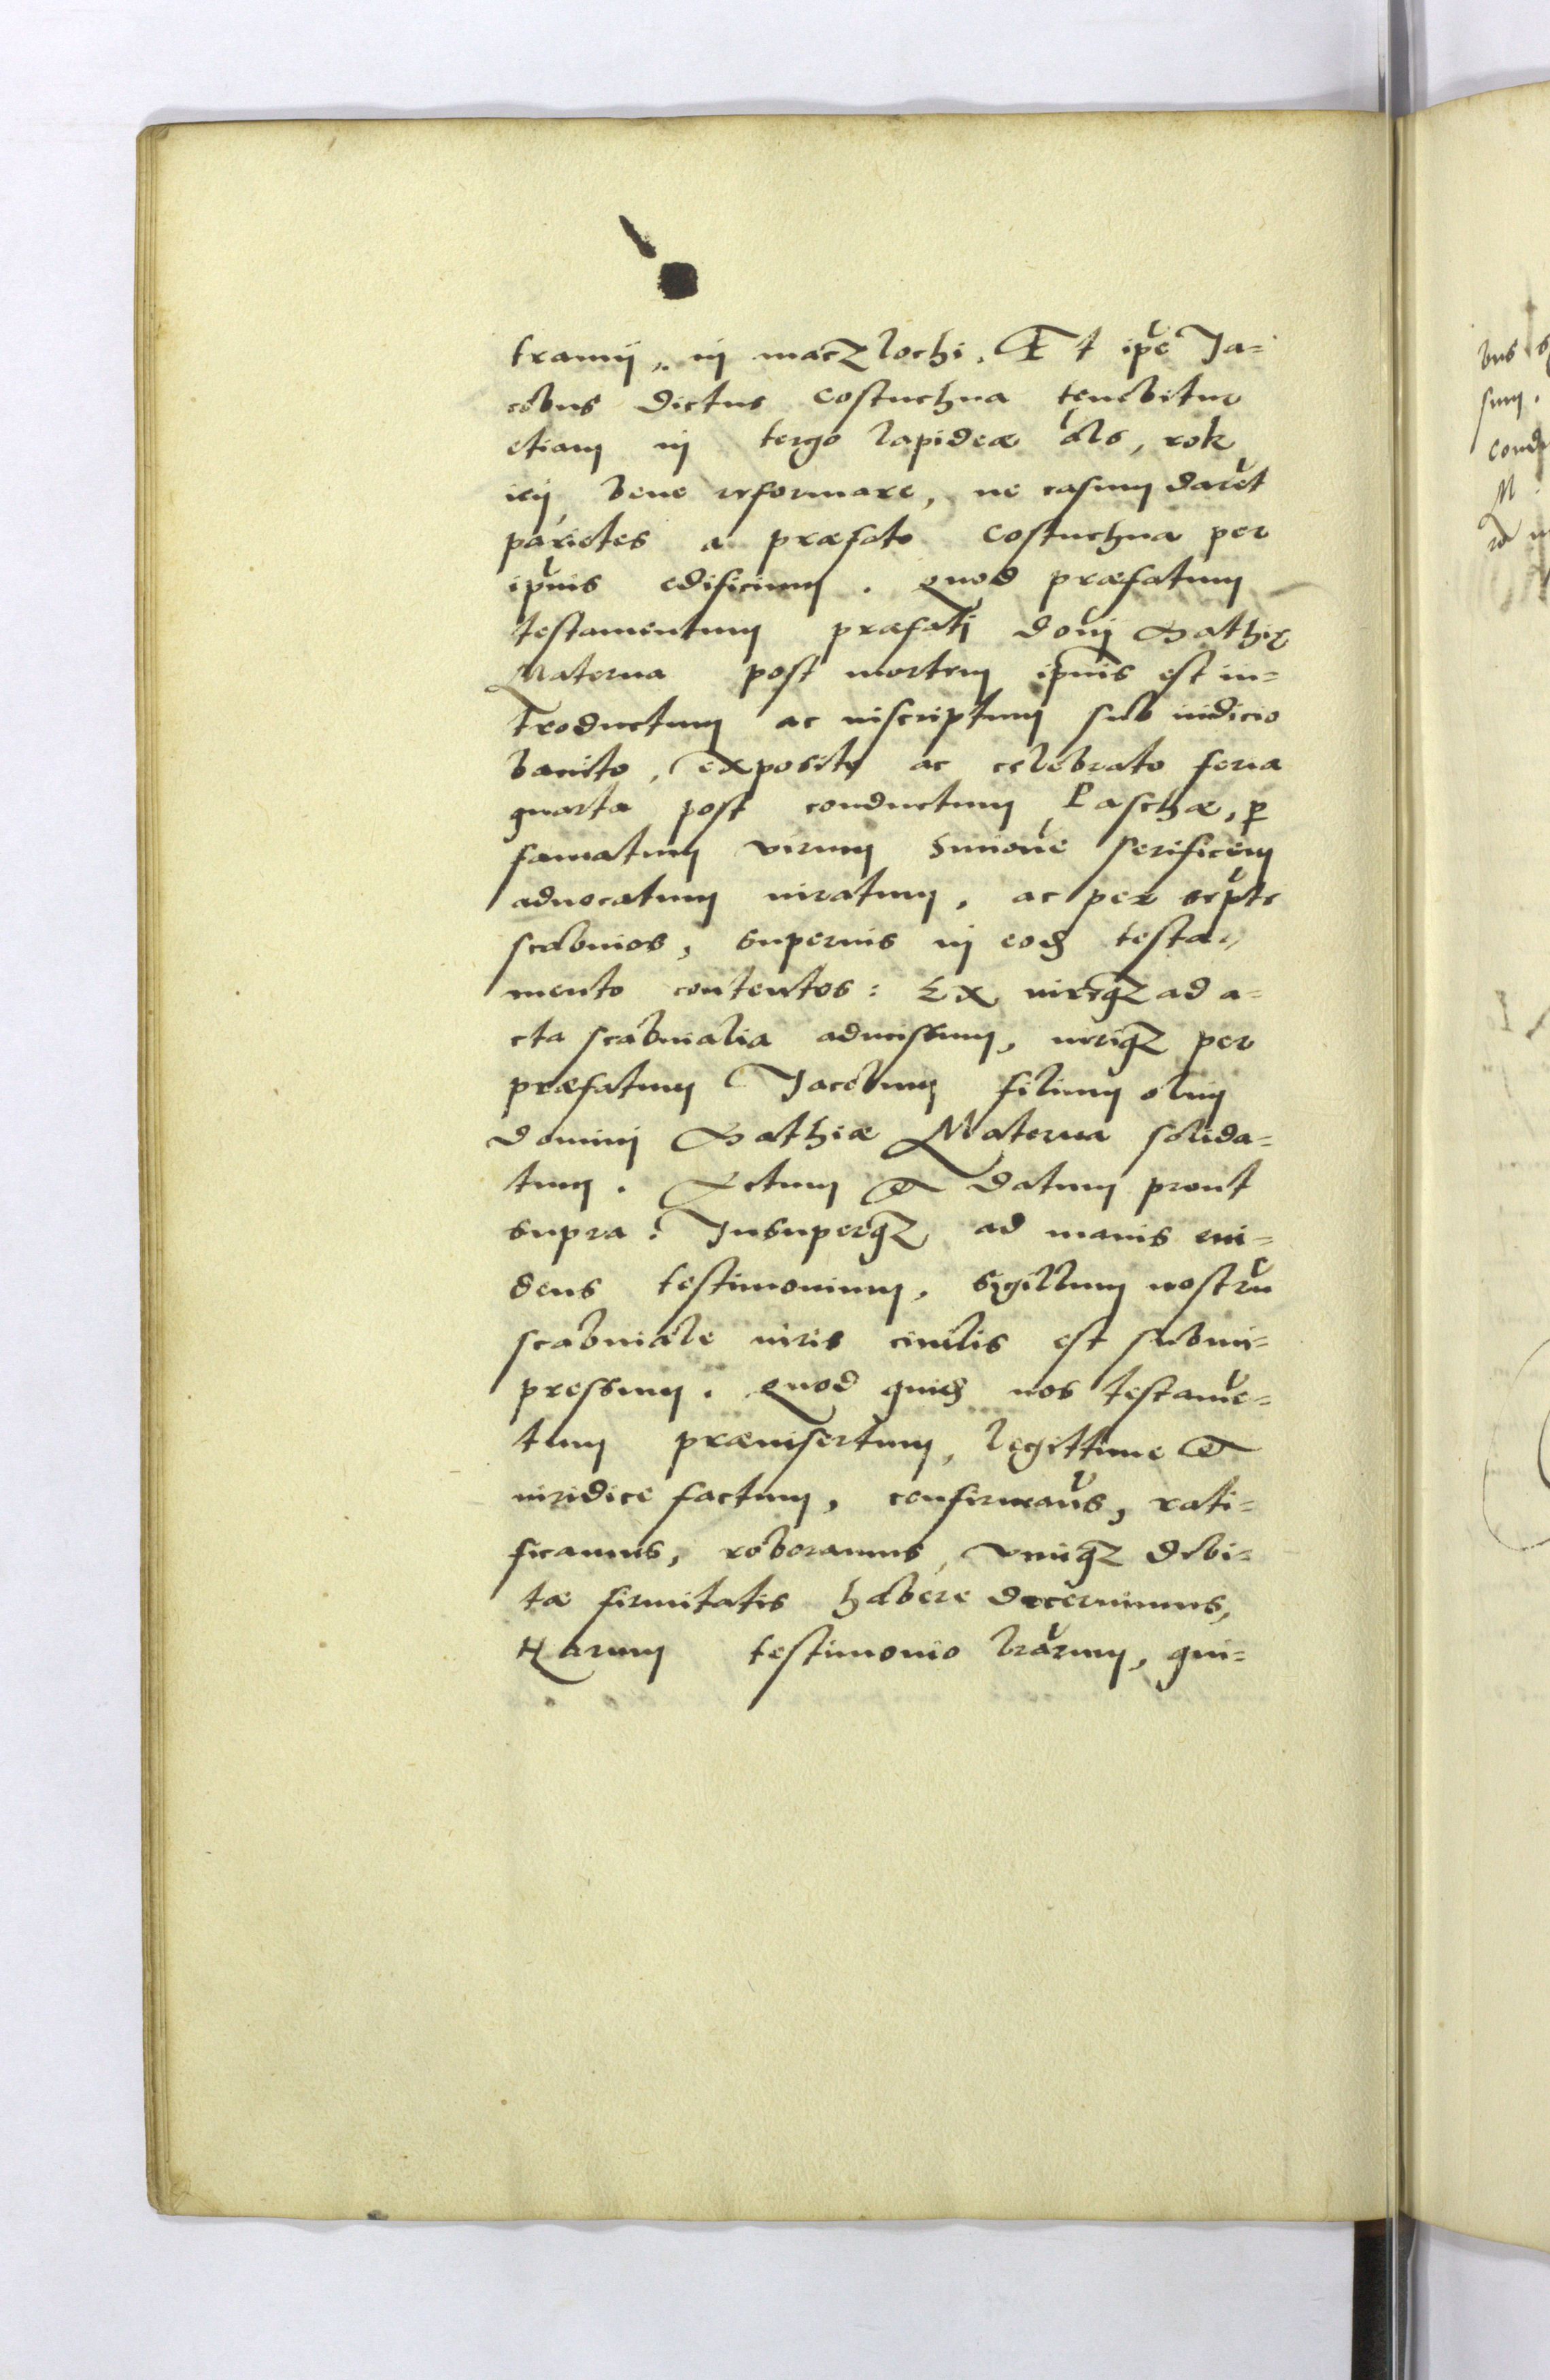 tramij, in maczlochi. Et ip̃e Ja=
cobus dictus Costuchna tenebitur
etiam in tergo lapideæ als, rok
icij, bene reformare, ne casum darẽt
parietes a præfato Costuchna per
ip̃ius edificium. Quod præfatum
testamentum præfati dom̃j Mathię
Materna post mortem ip̃ius est in=
troductum ac inscriptum sub iudicio
banito, exposito ac celebrato feria
quarta post conductum Paschæ, ꝑ
famatum virum Simonẽ serificem
aduocatum iuratum, ac per sep̃te
scabinos, superius in eod testa=
mento contentos: Ex iureqꝫ ad a=
cta scabinalia admissum, iureqꝫ per
præfatum Jacobum filium olim
domini Mathiæ Materna solida=
tum. Actum et datum prout
supra. Insuperqꝫ ad maius eui=
dens testimonium, sigillum nostrũ
scabiniale iuris ciuilis est subim=
pressum. Quod quid nos testamẽ=
tum præinsertum, legittime et
iuridice factum, confirmam̃s, rati=
ficamus, roboramus, vimqꝫ debi=
tæ firmitatis habere decernimus,
Harum testimonio lr̃arum, qui=
bus
sum.
cond
M